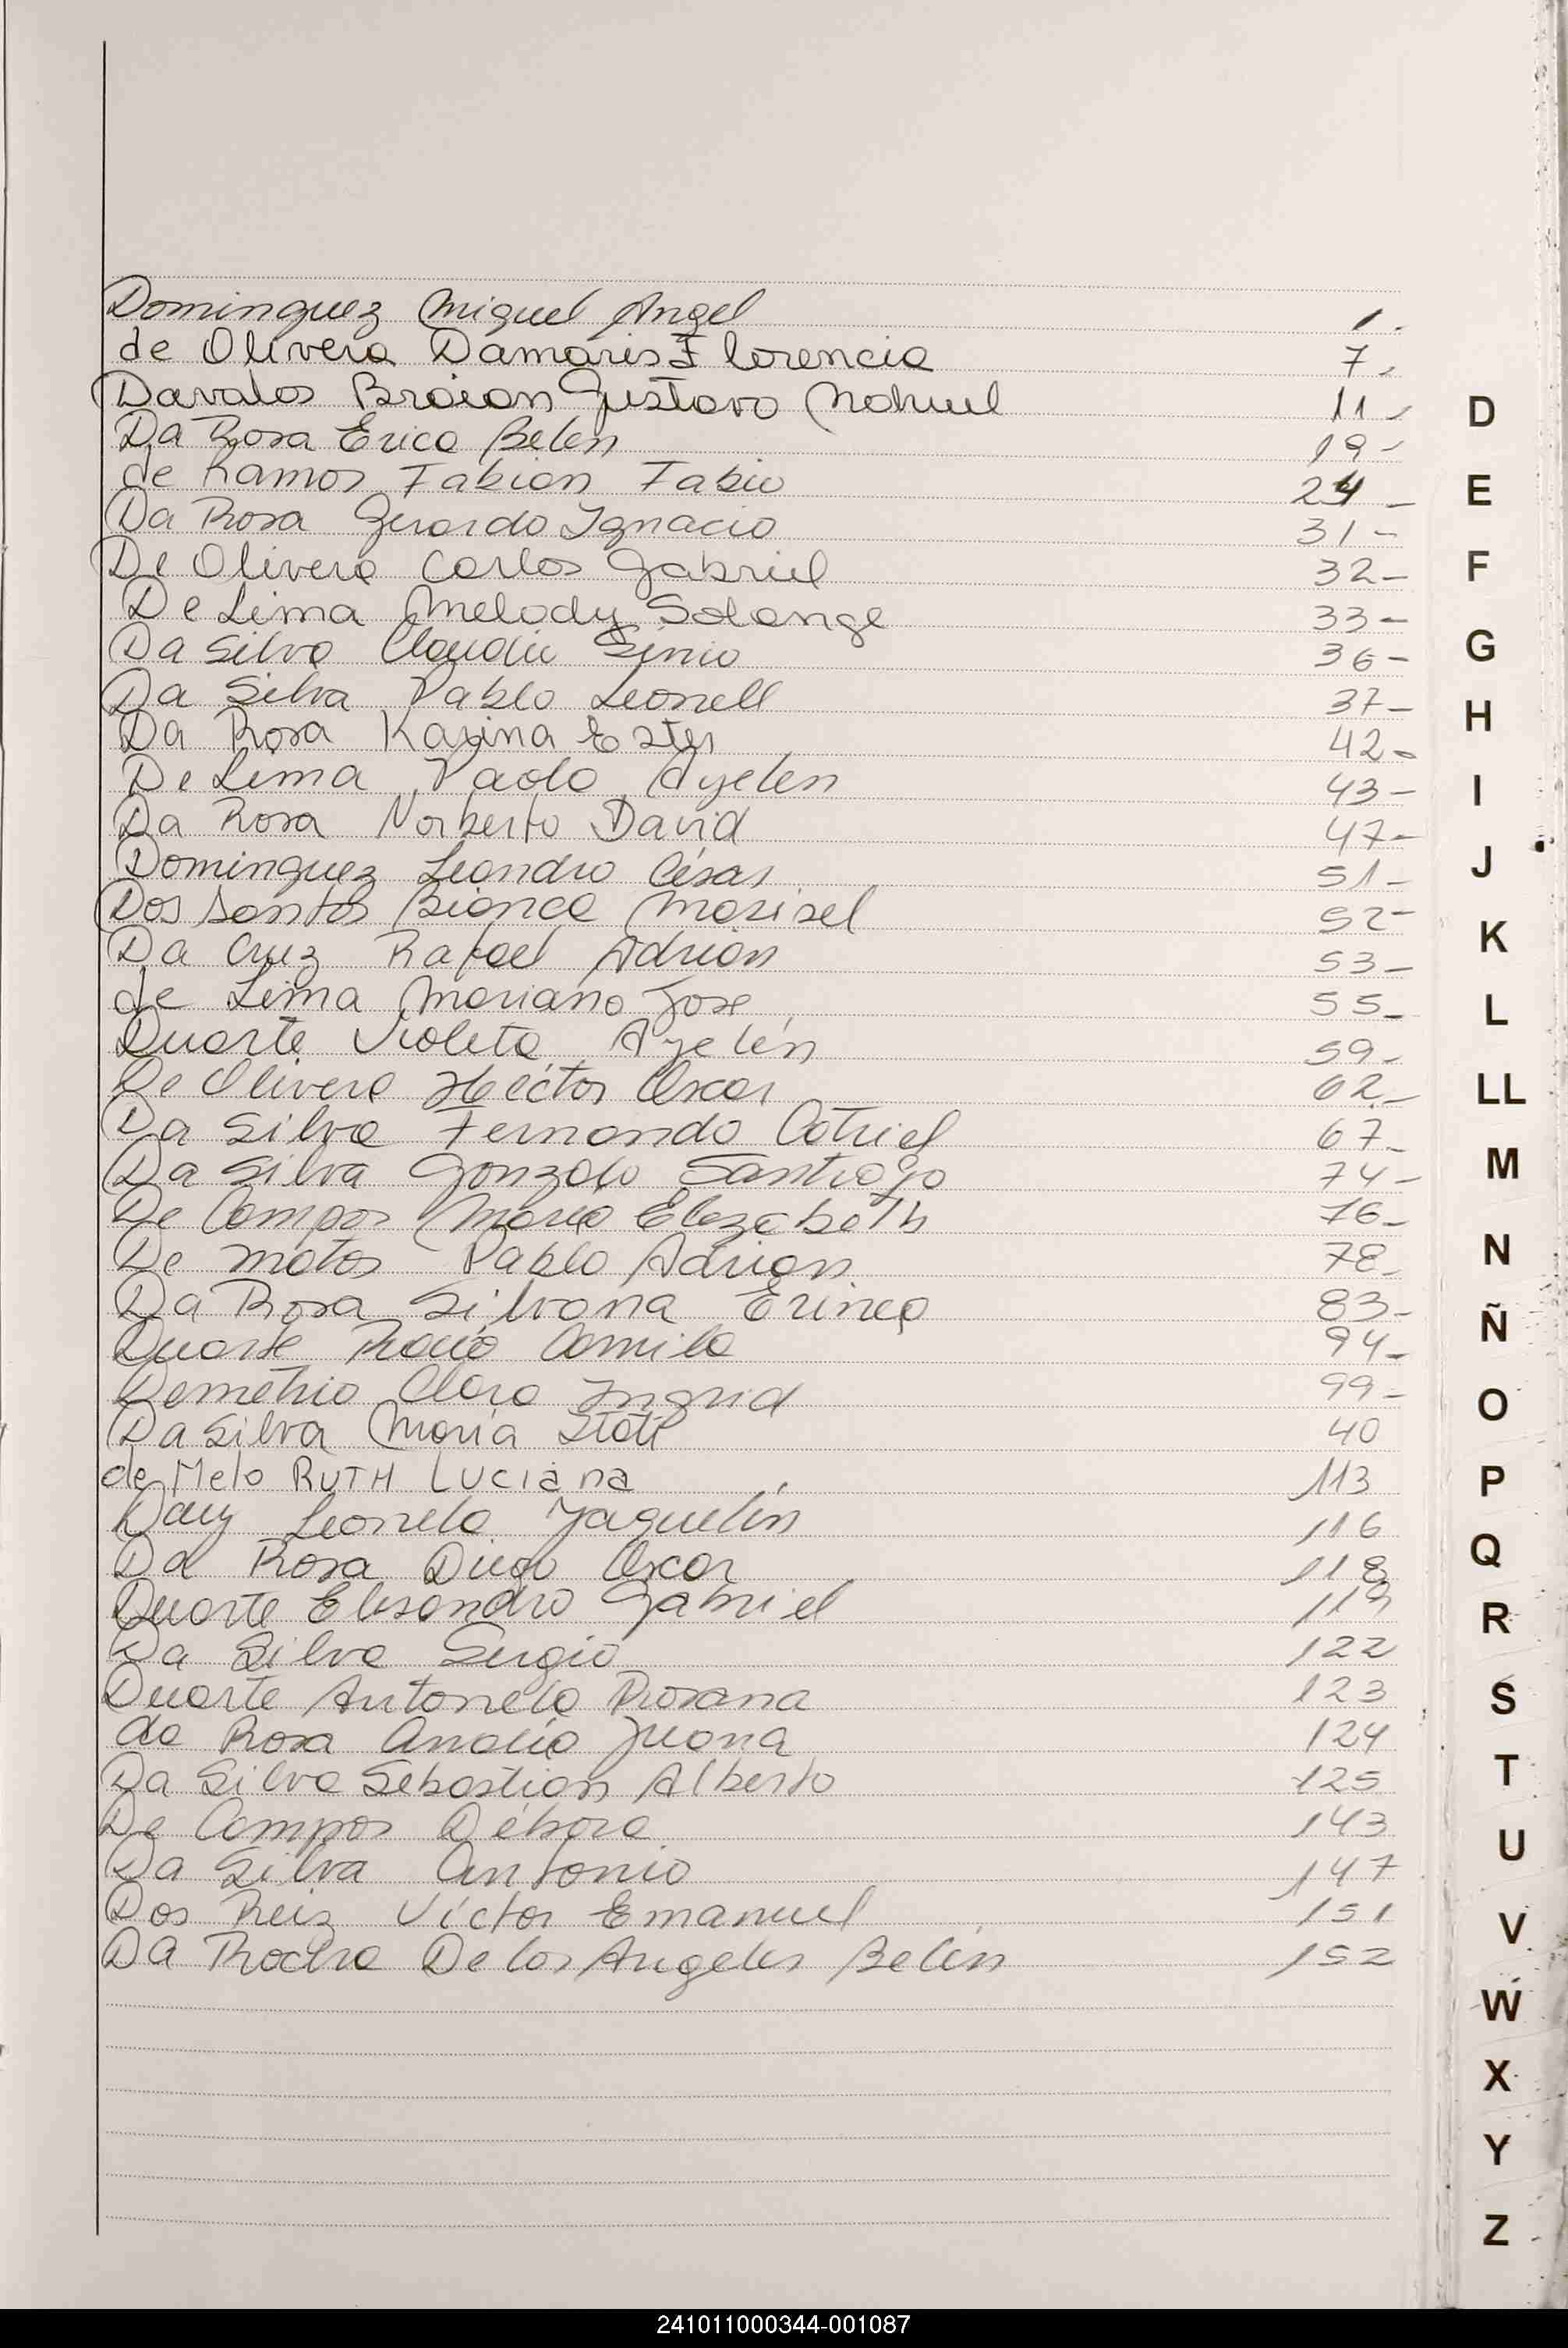 Dominguez Miguel Angel 1.
de Olivera Damaris Florencia 7.
Davalos Braian Gustavo Nahuel 11-
Da Rosa Erica Belen 19-
de Ramos Fabian Fabio 24-
Da Rosa Gerardo Ignacio 31-
De Olivera Carlos Gabriel 32-
De Lima Melody Solange 33-
Da Silva Claudio 36-
Da Silva Pablo Leonell 37-
Da Rosa Karina Ester 42-
De Lima Paola Ayelen 43-
Da Rosa Norberto David 47-
Dominguez Leandro César 51-
Dos Santos Bianca Marisel 52-
Da Cruz Rafael Adrian 53-
de Lima Mariano Jose 55-
Duarte Violeta Ayelén 59-
De Olivera Héctor Oscar 62-
Da Silva Fernando Catriel 67-
Da Silva Gonzalo Santiago 74-
De Campos María Elezabeth 76-
De Matos Pablo Adrian 78-
Da Rosa Silvana Erinea 83-
Duarte Rocío Camila 94-
Demetrio Clara Ingrid 99-
Da Silva María Itatí 40
de Melo RUTH LUCiana 113
Leonela Jaquelín 116
Da Rosa Diego Oscar 118
Duarte Elisandro Gabriel 119
Da Silva Sergio 122
Duarte Antonela Rosana 123
da Rosa Analía Juana 124
Da Silva Sebastian Alberto 125
De Campos Débora 143
Da Silva Antonio 147
Dos Reis Víctor Emanuel 151
Da Rocha De los Angeles Belén 152
D
E
F
G
H
I
J
K
L
LL
M
N
Ñ
O
P
Q
R
S
T
U
V
W
X
Y
Z
241011000344-001087